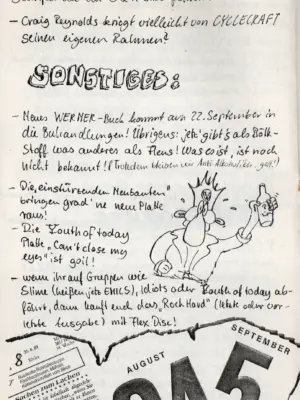 – Craig Reynolds kriegt vielleicht von CYCLECRAFT
seinen eigenen Rahmen?
SONSTIGES:
– Neues WERNER-Buch kommt am 22. September in
die Buhandlungen! Übrigens: jetz' gibt's als Bölk-
Stoff was anderes als Flens! Was es ist, ist noch
nicht bekannt! (Trotzdem bleiben wir Anti-Alkoholiker, gell!)
– Die „einstürzenden Neubauten"
bringen grad' ne neue Platte
raus!
– Die Youth of today
Platte „Can't close my
eyes" ist goil!
– wenn ihr auf Gruppen wie
Slime (heißen jetz EMILS), Idiots oder Youth of today ab-
fährt, dann kauft euch das „Rock Hard" (letzte oder vor-
letzte Ausgabe) mit Flex Disc!
8
AUGUST
SEPTEMBER
Sachen zum Lachen
245